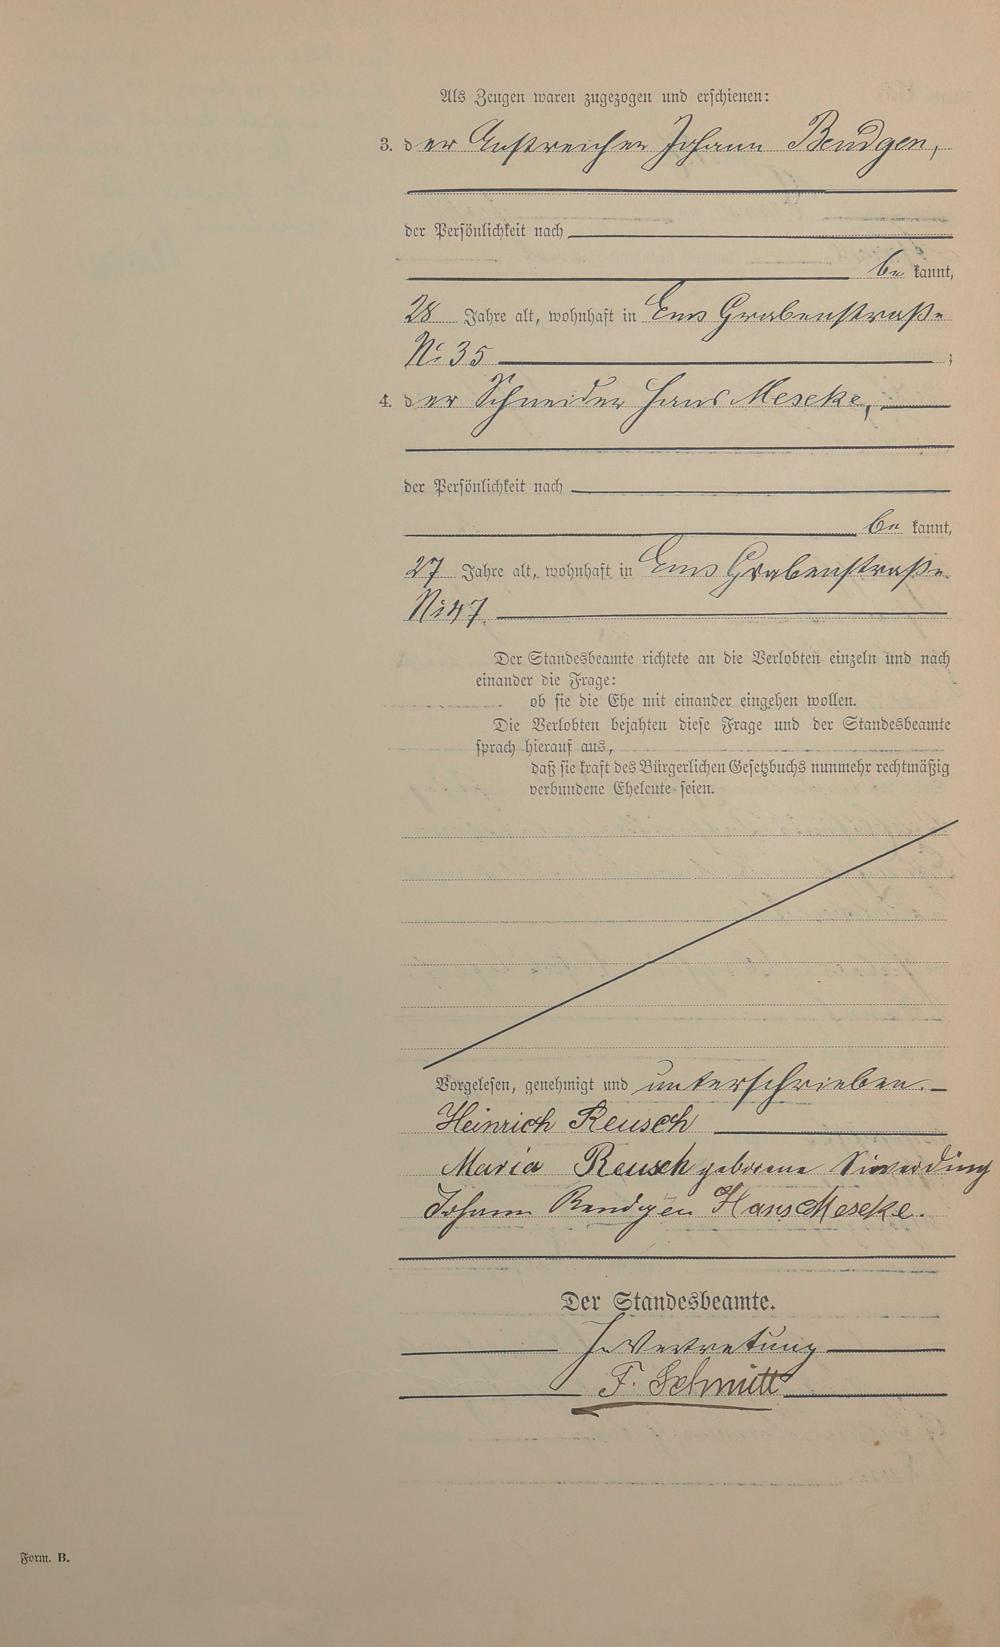 Als Zeugen waren zugezogen und erschienen:
3. der Anstreicher Johann Bendgen,
der Persönlichkeit nach
be kannt,
28 Jahre alt, wohnhaft in Ems Grabenstraße
No 35 ;
4. der Schneider Hans Meseke,
der Persönlichkeit nach
be kannt,
27 Jahre alt, wohnhaft in Ems Grabenstraße
No 47.
Der Standesbeamte richtete an die Verlobten einzeln und nach
einander die Frage:
ob sie die Ehe mit einander eingehen wollen.
Die Verlobten bejahten diese Frage und der Standesbeamte
sprach hierauf aus,
daß sie kraft des Bürgerlichen Gesetzbuchs nunmehr rechtmäßig
verbundene Eheleute seien.
Vorgelesen, genehmigt und unterschrieben.
Heinrich Reusch
Maria Reusch geborene Sieverding
Johann Bendgen Hans Meseke.
Der Standesbeamte.
In Vertretung
F. Schmitt
Form. B.